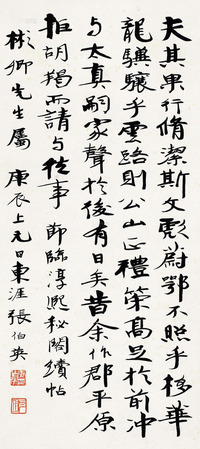 夫其果行脩潔斯文彪蔚鄂不照乎栘華
龍驥驤乎雲路則公山正禮策高足於前沖
与太真嗣家聲於後有日矣昔余作郡平原
拒胡羯而請与從事 節臨淳熙秘閣續帖
彬卿先生屬 庚辰上元日東涯張伯英